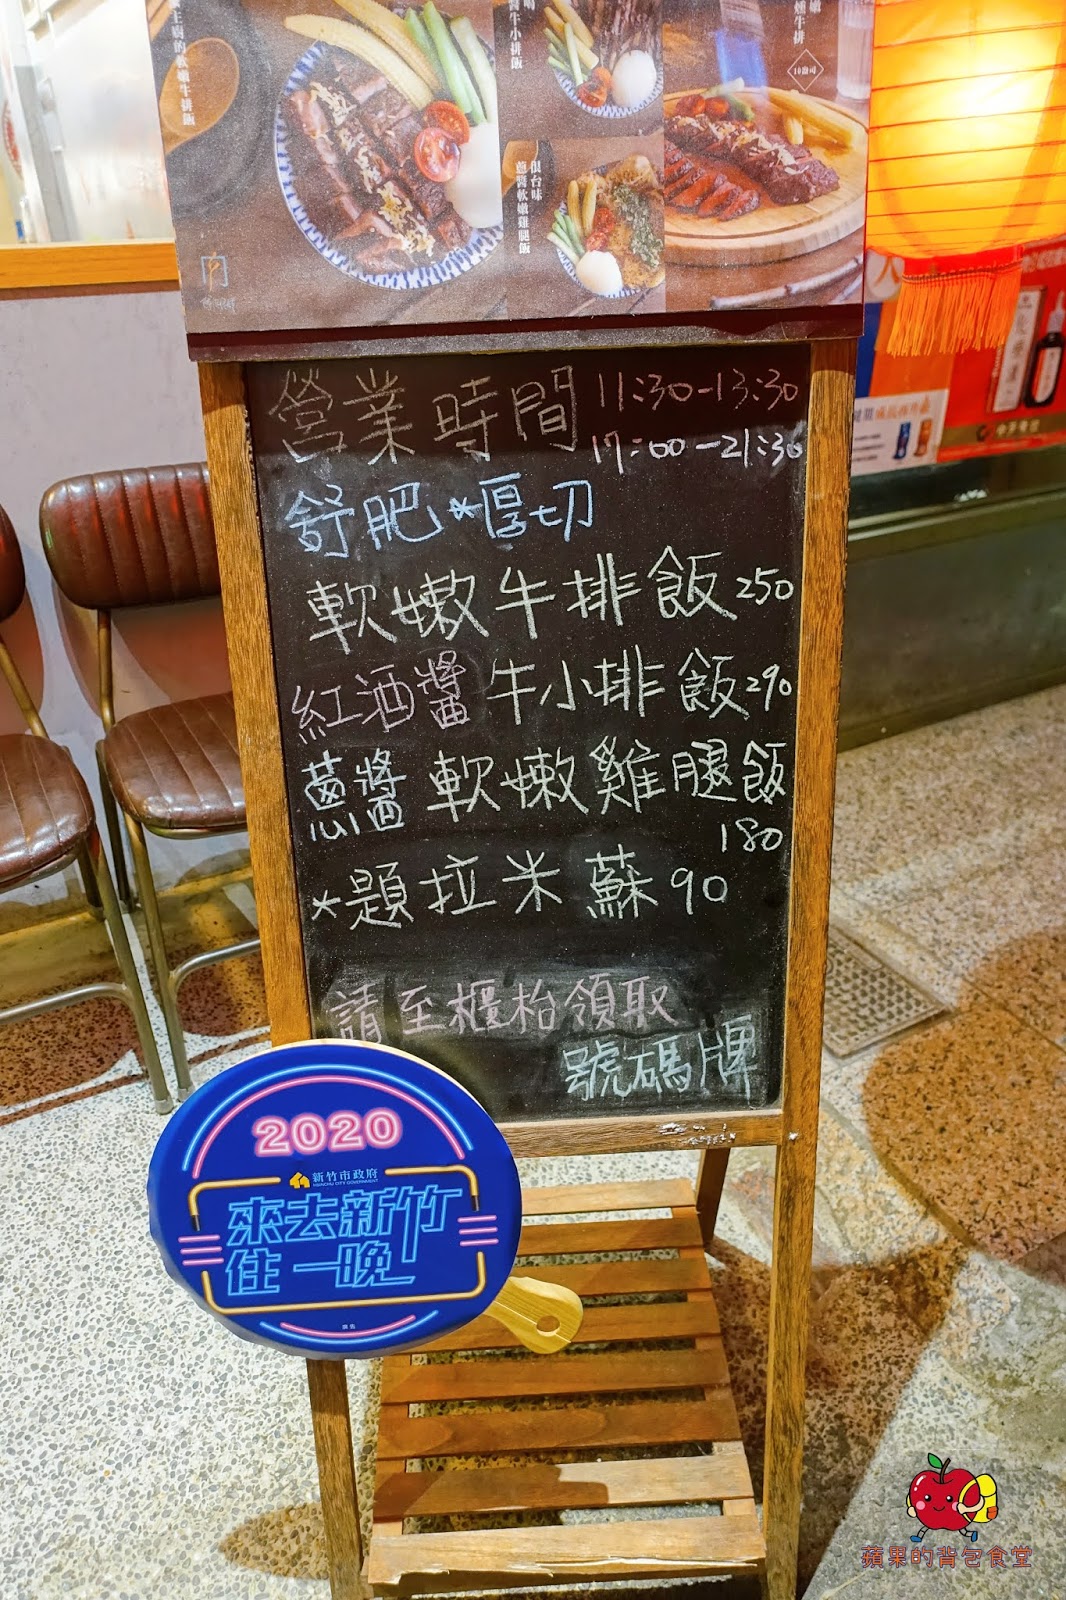 主廚的軟嫩牛排飯
醬牛小排飯
很台味
蔥醬軟嫩雞腿飯
10盎司
營業時間 11:30-13:30
17:00-21:30
舒肥*厚切
軟嫩牛排飯250
紅酒醬牛小排飯290
蔥醬軟嫩雞腿飯
180
*題拉米蘇90
請至櫃枱領取
號碼牌
2020
新竹市政府
HSINCHU CITY GOVERNMENT
來去新竹
住一晚
廣告
蘋果的背包食堂